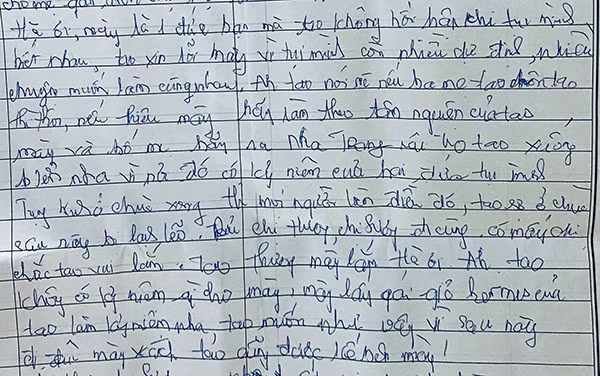 Hê ơi, mày là 1 đứa bạn mà tao không hối hận khi tụi mình
biết nhau, tao xin lỗi mày vì tụi mình còn nhiều dự định nhiều
chuyện muốn làm cùng nhau. Ah tao nói mẹ nếu ba mẹ tao chôn tao
thì thôi, nếu thiêu mày hãy làm theo tâm nguyện của tao
mày và bố mẹ hãy ra Nha Trang rải tro tao xuống
biển nha vì nơi đó có kỷ niệm của hai đứa tụi mình
chùa xong thì mọi người làm điều đó, tao sợ ở chùa
sau này bị lạnh lẽo. chị thương, chị cúng, có mấy chị
chắc tao vui lắm. Tao thương mày lắm Hê ơi Ah tao
không có kỷ niệm gì cho mày, mày lấy cái giỏ hermes của
tao làm kỷ niệm nha, tao muốn như vậy vì sau này
đi đâu mày xách tao cũng được kế bên mày!